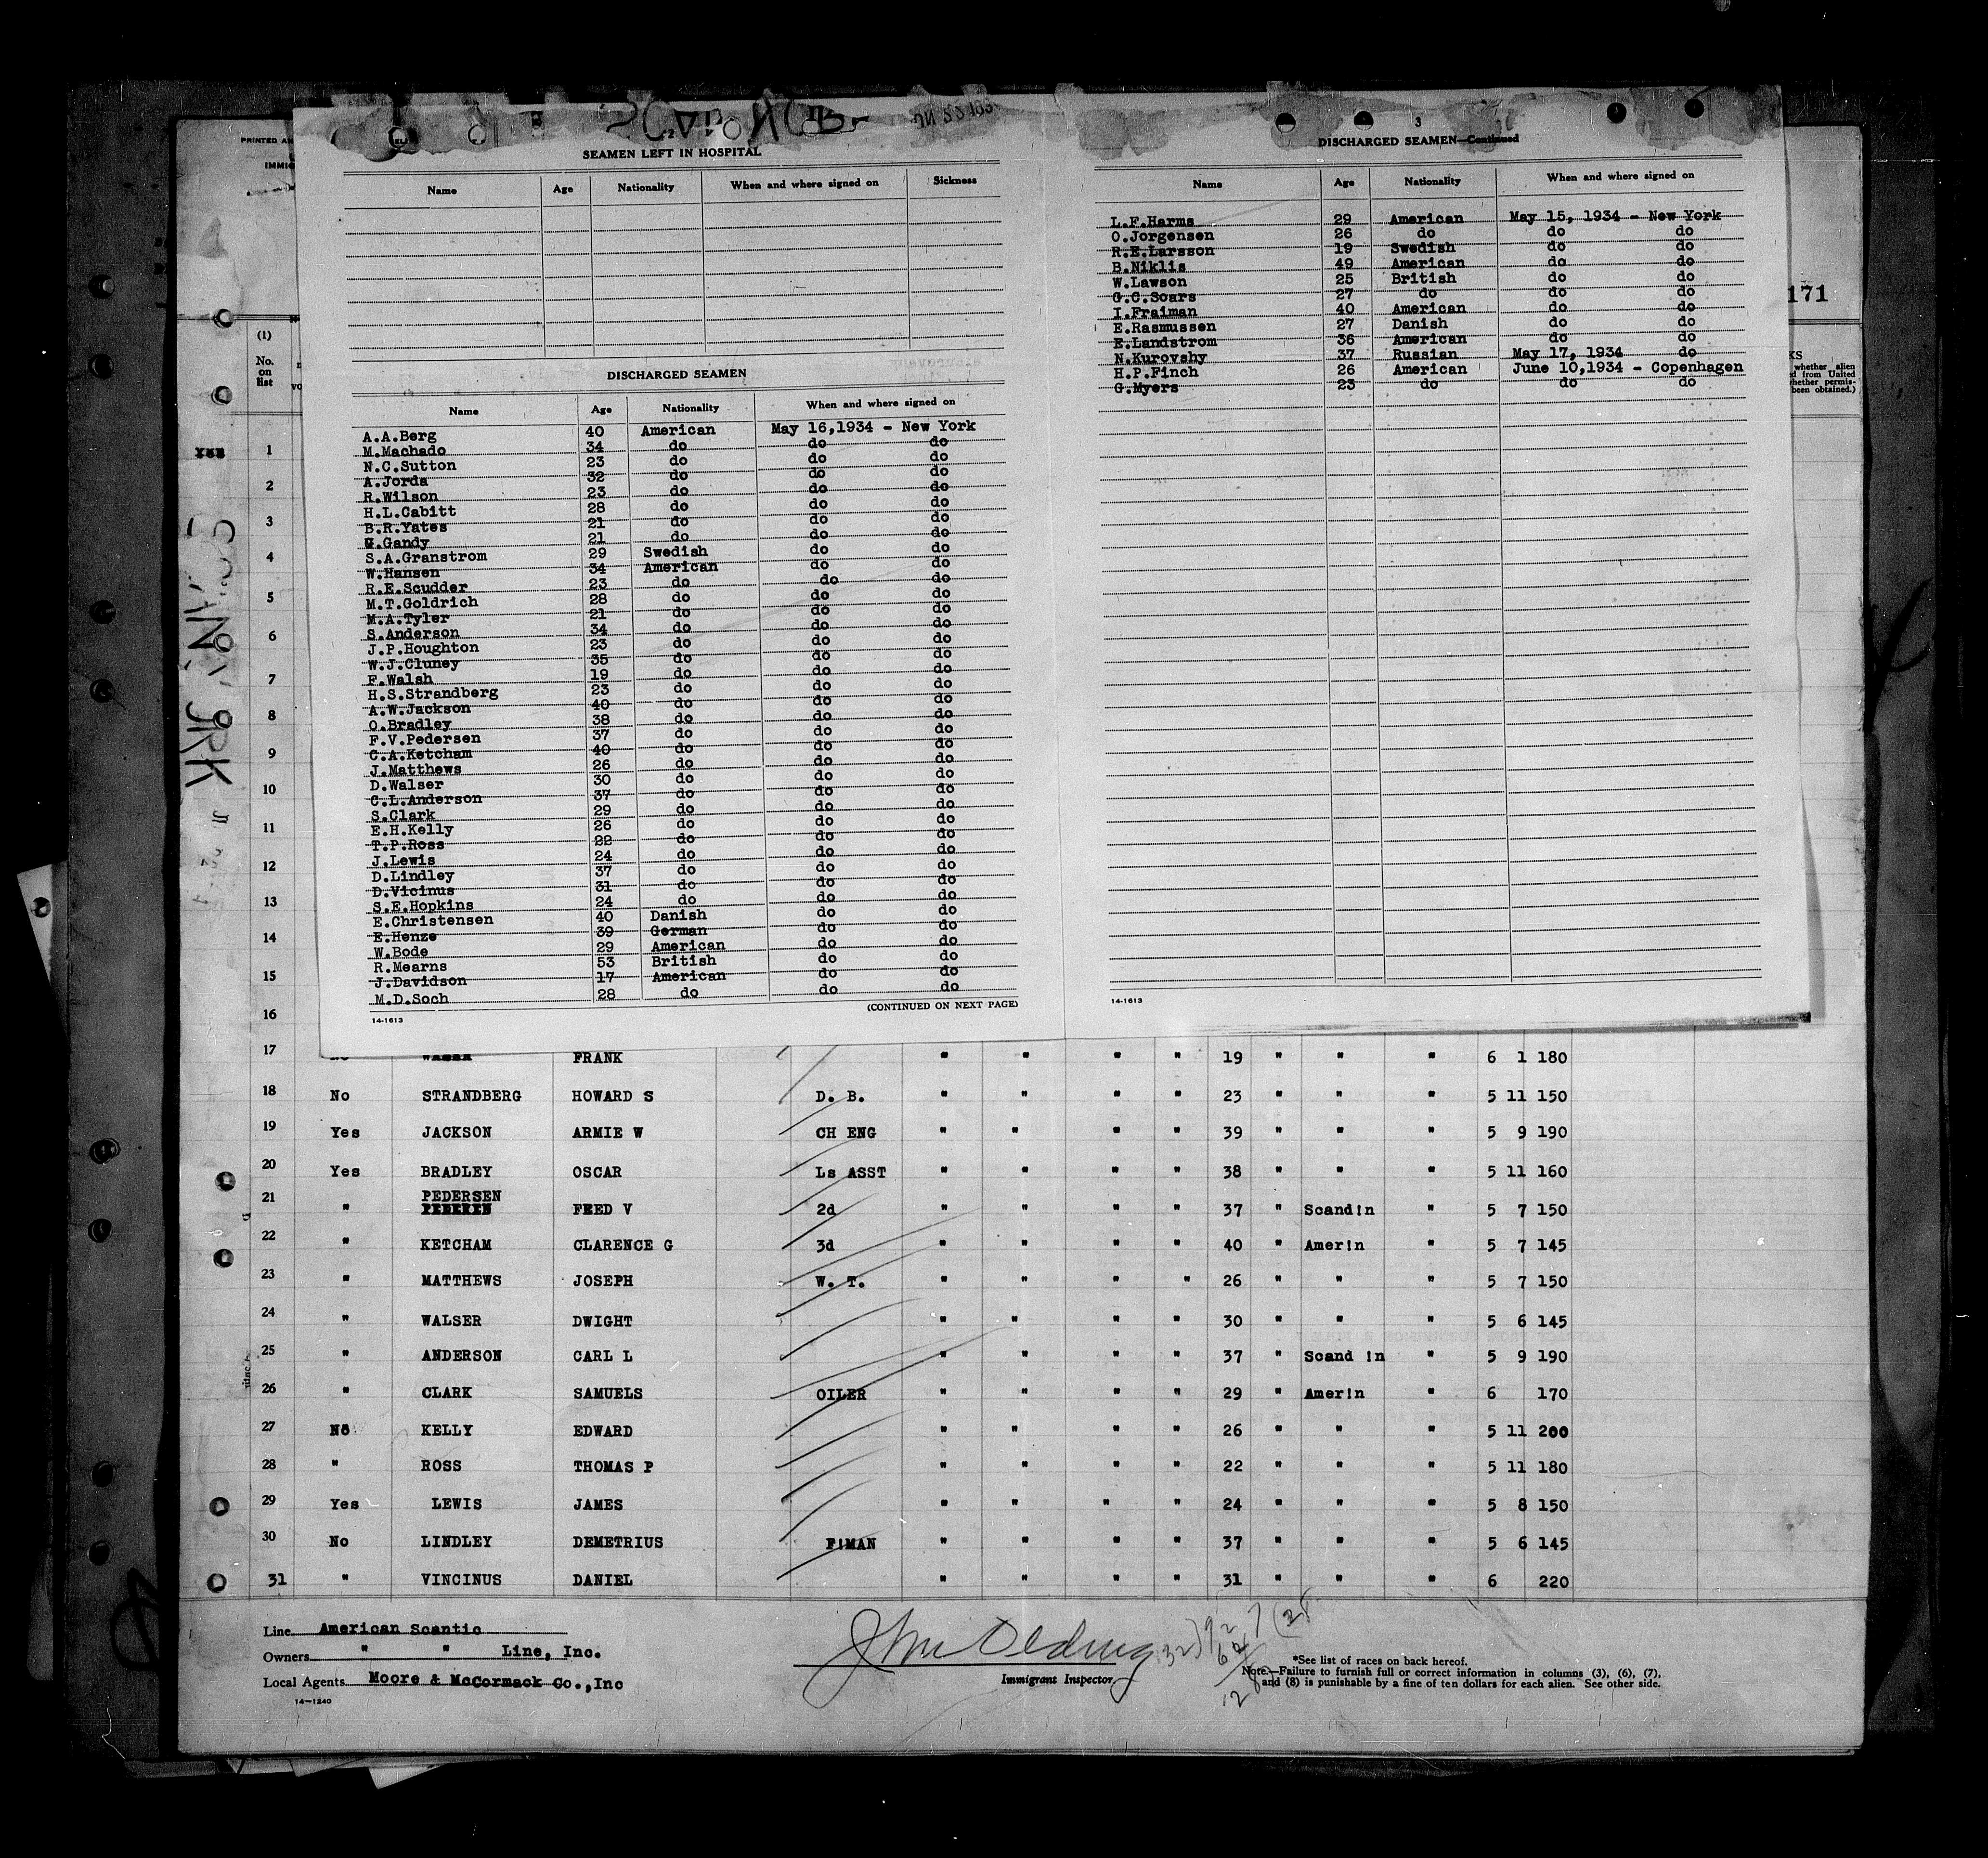 PRINTED
IMMIG
SEAMEN LEFT IN HOSPITAL
Name Age Nationality When and where signed on Sickness
DISCHARGED SEAMEN
Name Age Nationality When and where signed on
A.A.Berg 40 American May 16,1934 - New York
M.Machado 34 do do do
N.C.Sutton 23 do do do
A.Jorda 32 do do do
R.Wilson 23 do do do
H.L.Cabitt 28 do do do
B.R.Yates 21 do do do
G.Gandy 21 do do do
S.A.Granstrom 29 Swedish do do
W.Hansen 34 American do do
R.E.Scudder 23 do do do
M.T.Goldrich 28 do do do
M.A.Tyler 21 do do do
S.Anderson 34 do do do
J.P.Houghton 23 do do do
W.J.Cluney 35 do do do
F.Walsh 19 do do do
H.S.Strandberg 23 do do do
A.W.Jackson 40 do do do
O.Bradley 38 do do do
F.V.Pedersen 37 do do do
C.A.Ketcham 40 do do do
J.Matthews 26 do do do
D.Walser 30 do do do
C.L.Anderson 37 do do do
S.Clark 29 do do do
E.H.Kelly 26 do do do
T.P.Ross 22 do do do
J.Lewis 24 do do do
D.Lindley 37 do do do
D.Vicinus 31 do do do
S.E.Hopkins 24 do do do
E.Christensen 40 Danish do do
E.Henze 39 German do do
W.Bode 29 American do do
R.Mearns 53 British do do
J.Davidson 17 American do do
M.D.Soch 28 do do do
(CONTINUED ON NEXT PAGE)
14-1613
3
DISCHARGED SEAMEN—Continued
Name Age Nationality When and where signed on
L.F.Harms 29 American May 15, 1934 - New York
O.Jorgensen 26 do do do
R.E.Larsson 19 Swedish do do
B.Niklis 49 American do do
W.Lawson 25 British do do
G.C.Soars 27 do do do
I.Fraiman 40 American do do
E.Rasmussen 27 Danish do do
E.Landstrom 36 American do do
N.Kurovshy 37 Russian May 17, 1934 do
H.P.Finch 26 American June 10,1934 - Copenhagen
G.Myers 23 do do do
14-1613
171
whether alien
d from United
hether permis-
been obtained.)
(1)
No.
on
list
1
2
3
4
5
6
7
8
9
10
11
12
13
14
15
16
17 FRANK " " " " 19 " " " 6 1 180
18 No STRANDBERG HOWARD S D. B. " " " " 23 " " " 5 11 150
19 Yes JACKSON ARMIE W CH ENG " " " " 39 " " " 5 9 190
20 Yes BRADLEY OSCAR Ls ASST " " " " 38 " " " 5 11 160
21 " PEDERSEN FRED V 2d " " " " 37 " Scand!n " 5 7 150
22 " KETCHAM CLARENCE G 3d " " " " 40 " Amer!n " 5 7 145
23 " MATTHEWS JOSEPH W. T. " " " " 26 " " " 5 7 150
24 " WALSER DWIGHT " " " " 30 " " " 5 6 145
25 " ANDERSON CARL L " " " " 37 " Scand !n " 5 9 190
26 " CLARK SAMUELS OILER " " " " 29 " Amer!n " 6 170
27 No KELLY EDWARD " " " " 26 " " " 5 11 200
28 " ROSS THOMAS P " " " " 22 " " " 5 11 180
29 Yes LEWIS JAMES " " " " 24 " " " 5 8 150
30 No LINDLEY DEMETRIUS F!MAN " " " " 37 " " " 5 6 145
31 " VINCINUS DANIEL " " " " 31 " " " 6 220
Line American Scantic
Owners " " Line, Inc.
Local Agents Moore & McCormack Co.,Inc
14-1240
Immigrant Inspector
*See list of races on back hereof.
Note.—Failure to furnish full or correct information in columns (3), (6), (7),
and (8) is punishable by a fine of ten dollars for each alien. See other side.